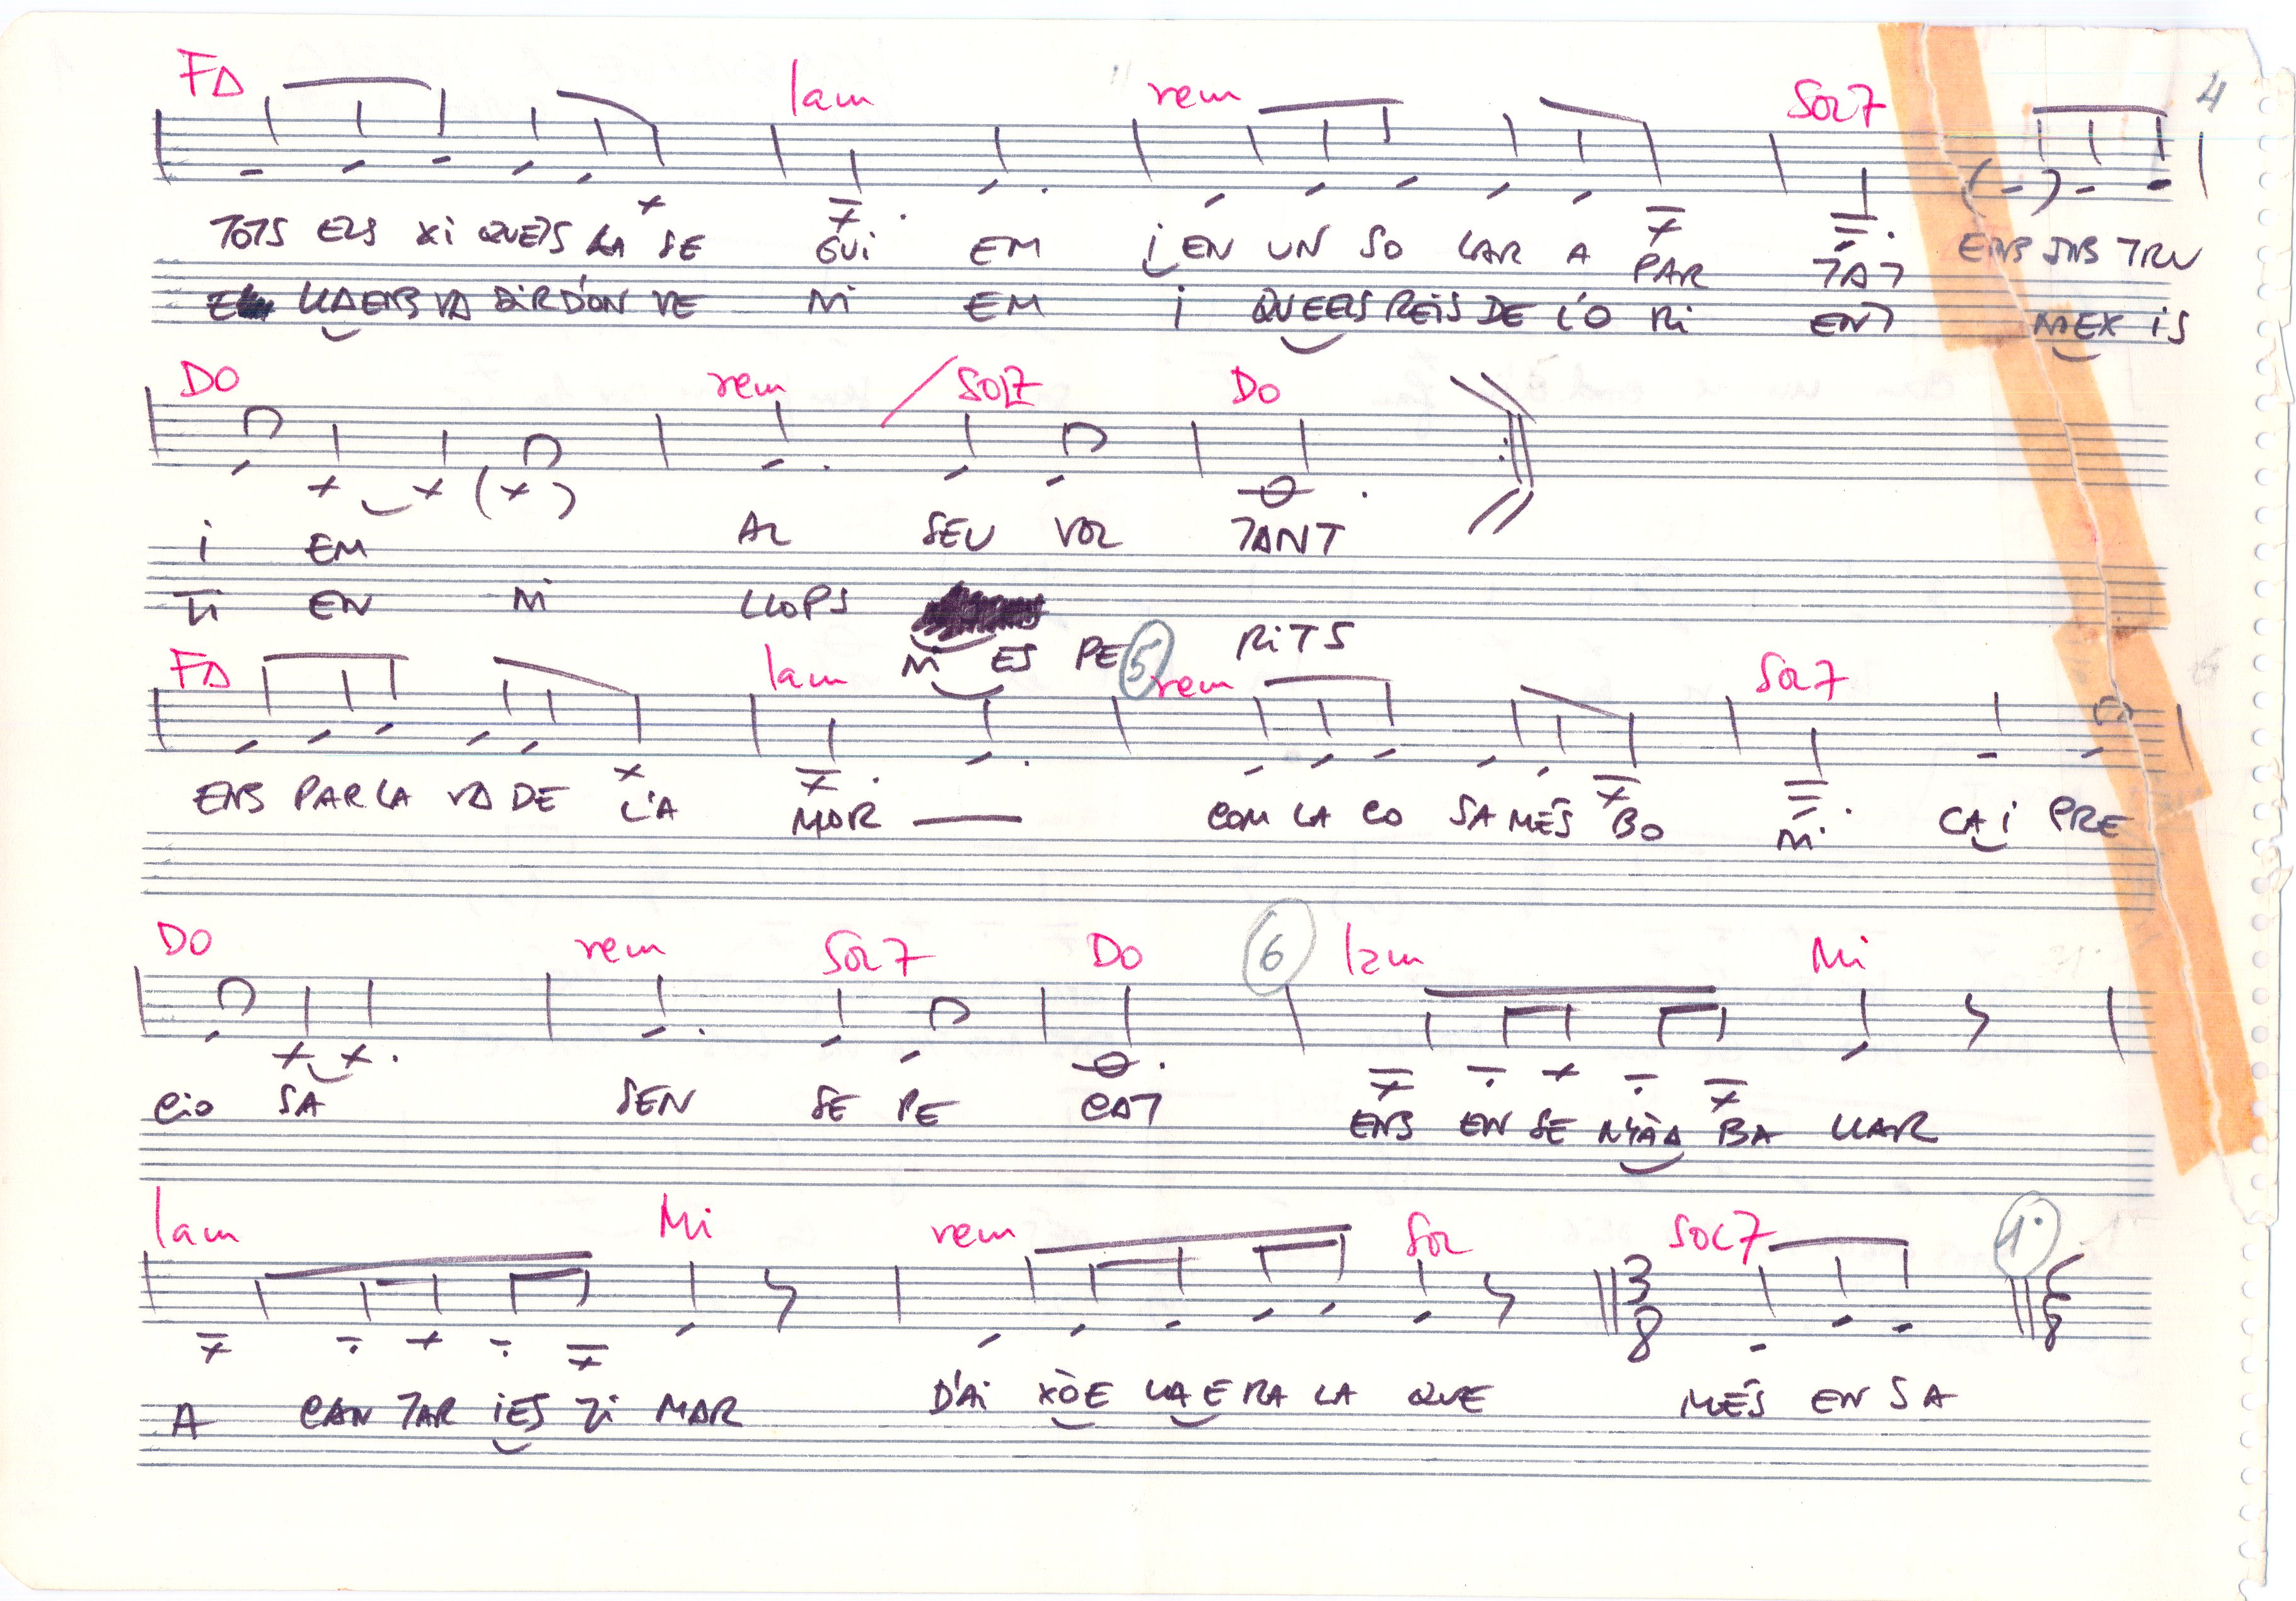 4
FA lam rem SOL7
TOTS ELS XI QUETS LA SE GUI EM I EN UN SO LAR A PAR TAT ENS INS TRU
LLA ENS VA DIR D'ON VE NI EM I QUE ELS REIS DE L'O RI ENT MEX IS
DO rem / SOL7 DO
I EM AL SEU VOL TANT
TI EN NI LLOPS
NI ES PE RITS
FA lam 5 rem SOL7
ENS PAR LA VA DE L'A MOR — COM LA CO SA MÉS BO NI CA I PRE
DO rem SOL7 DO 6 lam Mi
CIO SA SEN SE PE CAT ENS EN SE NYÀ A BA LLAR
lam Mi rem SOL SOL7 1
3 8 6 8
A CAN TAR I ES TI MAR D'AI XÒ E LLA E RA LA QUE MÉS EN SA